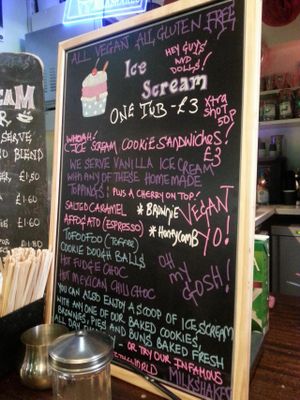 ALL VEGAN ALL GLUTEN FREE
HEY GUYS'
NVD
DOLLS!
Ice
Scream
ONE TUB - £3
Xtra
SHOT
50
WHOAH!
ICE SCREAM COOKIE SANDWICHES!
£3
WE SERVE VANILLA ICE CREAM
WITH ANY OF THESE HOMEMADE
TOPPINGS: PLUS A CHERRY ON TOP!
SALTED CARAMEL * BROWNIE
AFFOGATO (ESPRESSO) * HONEYCOMB
VEGAN
YO!
TOFOOFOO (TOFFEE)
COOKIE DOUGH BALLS
HOT FUDGE CHOC
HOT MEXICAN CHILLI CHOC
OH
MY
GOSH!
YOU CAN ALSO ENJOY A SCOOP OF ICE SCREAM
WITH ANY ONE OF OUR BAKED COOKIES,
BROWNIES, PIES AND BUNS BAKED FRESH
ALL DAY
- OR TRY OUR INFAMOUS
WORLD
MILKSHAKES
EAM
BLEND
£1.50
£1.60